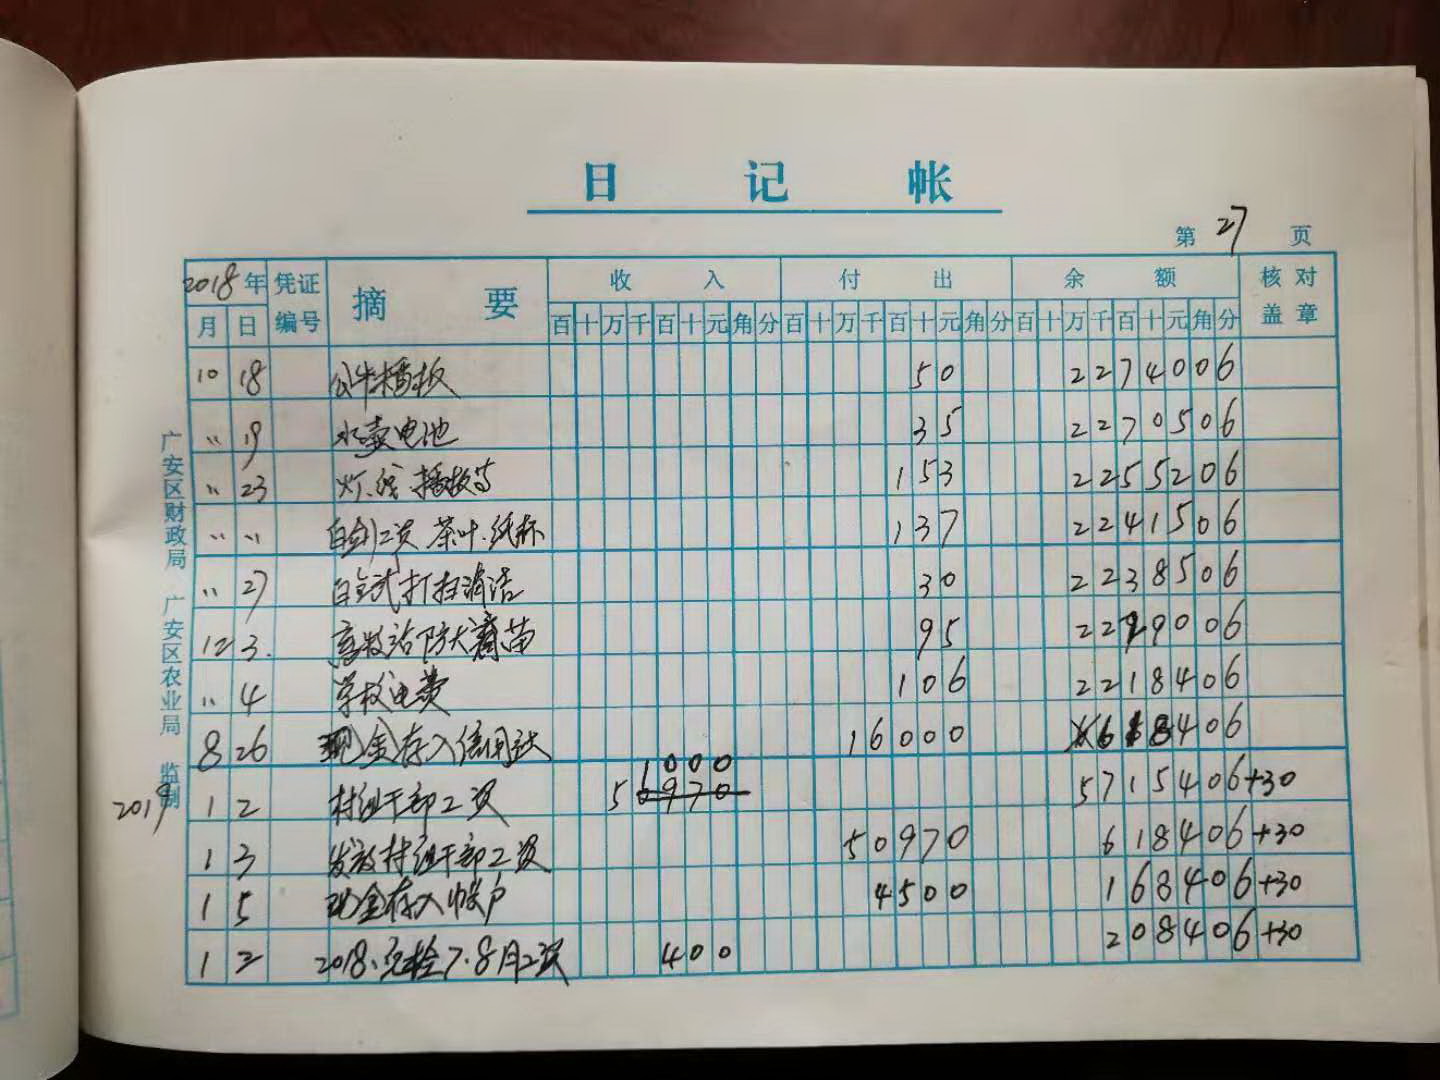 日 记 帐
第 27 页
2018年 凭证编号 摘要 收入 付出 余额 核对盖章
月 日 百十万千百十元角分 百十万千百十元角分 百十万千百十元角分
10 18 公牛插板 50 2274006
〃 19 水壶电池 35 2270506
〃 23 灯.线 插板等 153 2255206
〃 〃 工资 茶叶.纸杯 137 2241506
〃 27 打扫清洁 30 2238506
12 3. 畜牧站防犬 苗 95 2229006
〃 4 学校电费 106 2218406
8 26 现金存入信用社 16000 618406
2019
1 2 村组干部工资 51000 5715406+30
1 3 发放村组干部工资 50970 618406+30
1 5 现金存入帐户 4500 168406+30
1 2 2018. 7.8月工资 400 208406+30
广安区财政局 广安区农业局 监制